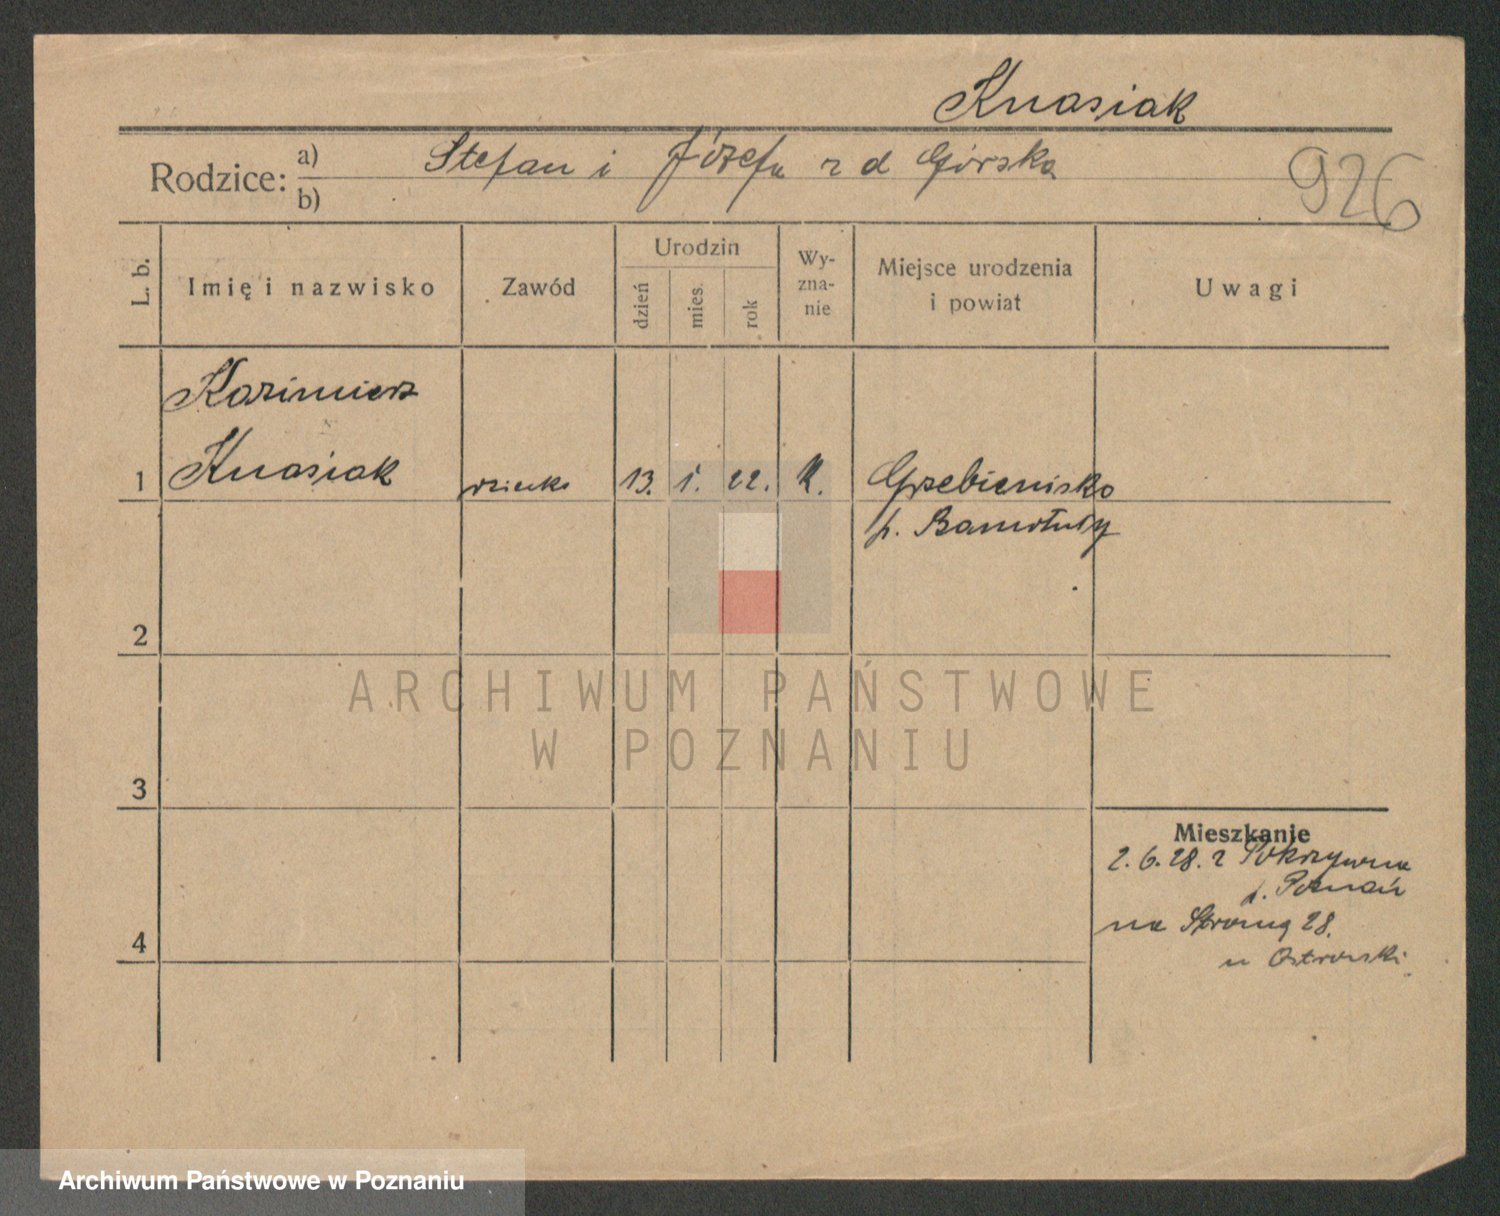 Knasiak
Rodzice: a) Stefan i Józefa z d Górska
b)
926
L. b. Imię i nazwisko Zawód Urodzin dzień mies. rok Wyznanie Miejsce urodzenia i powiat Uwagi
Kazimierz
1 Knasiak dziecko 13. 1. 22. K. Grzebienisko
p. Szamotuły
2
ARCHIWUM PAŃSTWOWE
W POZNANIU
3
Mieszkanie
2. 6. 28. z Pokrzywna
p. Poznań
na Stromą 28.
4
u Ostrowski
Archiwum Państwowe w Poznaniu